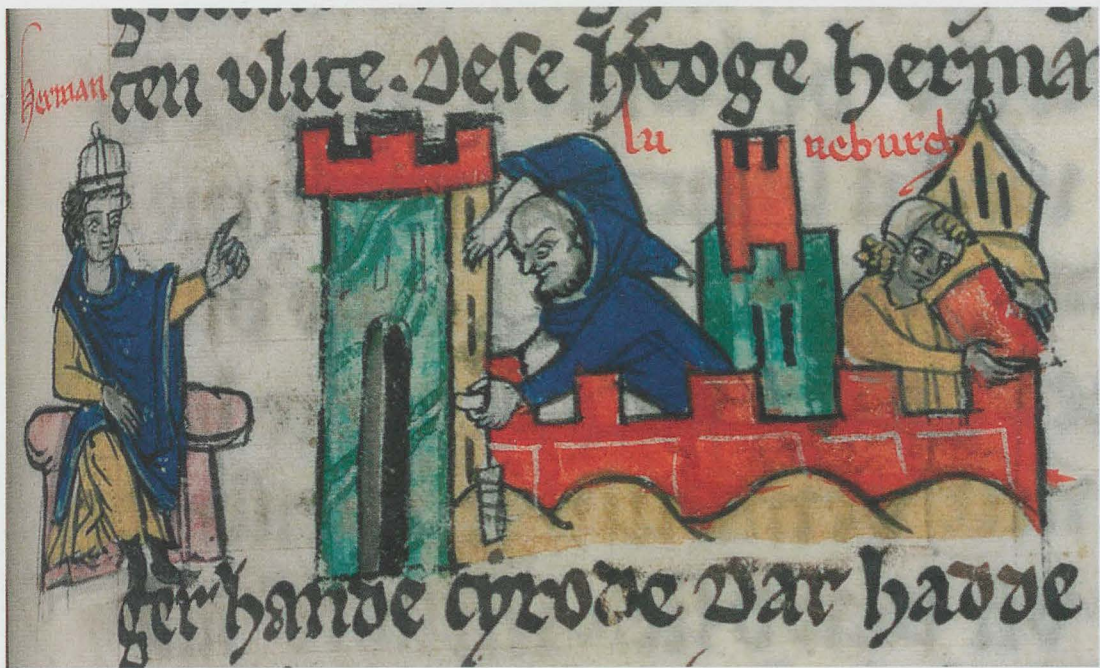 herman
ten vlite. Dese h'toge herma
lu neburch
ger hande cyrode Dar hadde